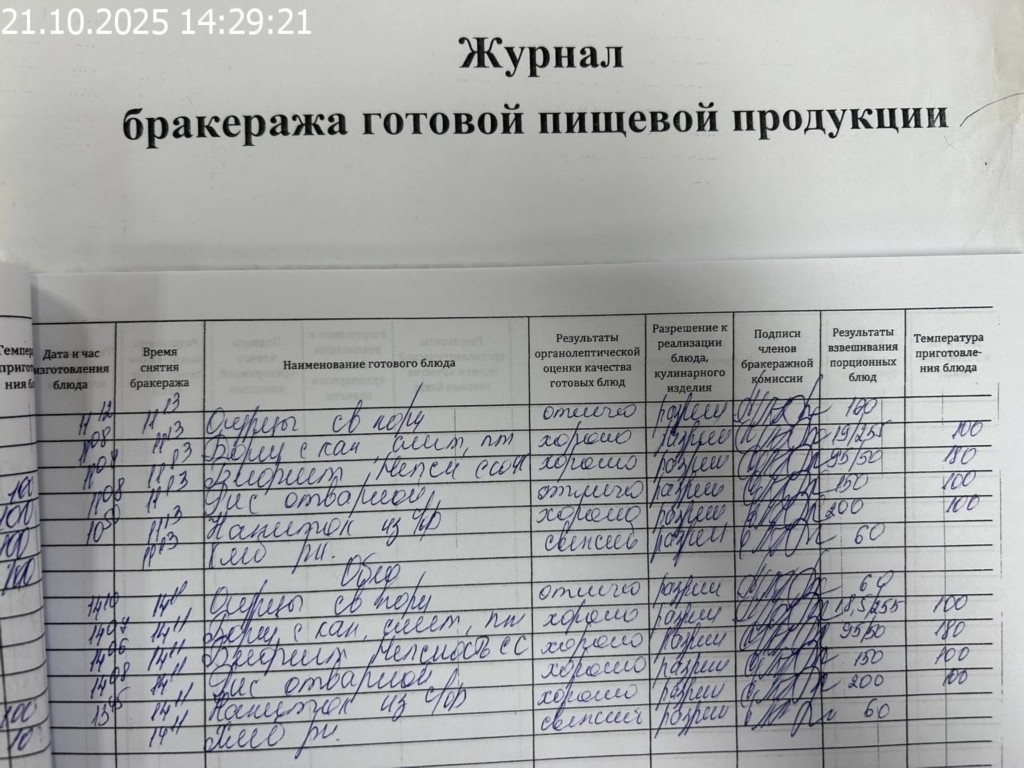 21.10.2025 14:29:21
Журнал
бракеража готовой пищевой продукции
Дата и час изготовления блюда
Время снятия бракеража
Наименование готового блюда
Результаты органолептической оценки качества готовых блюд
Разрешение к реализации блюда, кулинарного изделия
Подписи членов бракеражной комиссии
Результаты взвешивания порционных блюд
Температура приготовле-ния блюда
11 12 11 13 Огурцы св порц отлично разреш 100
11 08 11 13 Борщ с кап, смет, пт хорошо разреш 19/255 100
11 13 хорошо разреш 95/50 180
11 08 11 13 Рис отварной отлично разреш 150 100
10 50 11 13 Напиток из хорошо разреш 200 100
11 13 Хлеб рж. свежий разреш 60
Обед
14 10 14 11 Огурцы св порц отлично разреш 60
14 07 14 11 Борщ с кап, смет, пт хорошо разреш 18,5/255 100
14 06 14 11 хорошо разреш 95/50 180
14 08 14 11 Рис отварной хорошо разреш 150 100
14 11 Напиток из хорошо разреш 200 100
14 11 Хлеб рж. свежий разреш 60